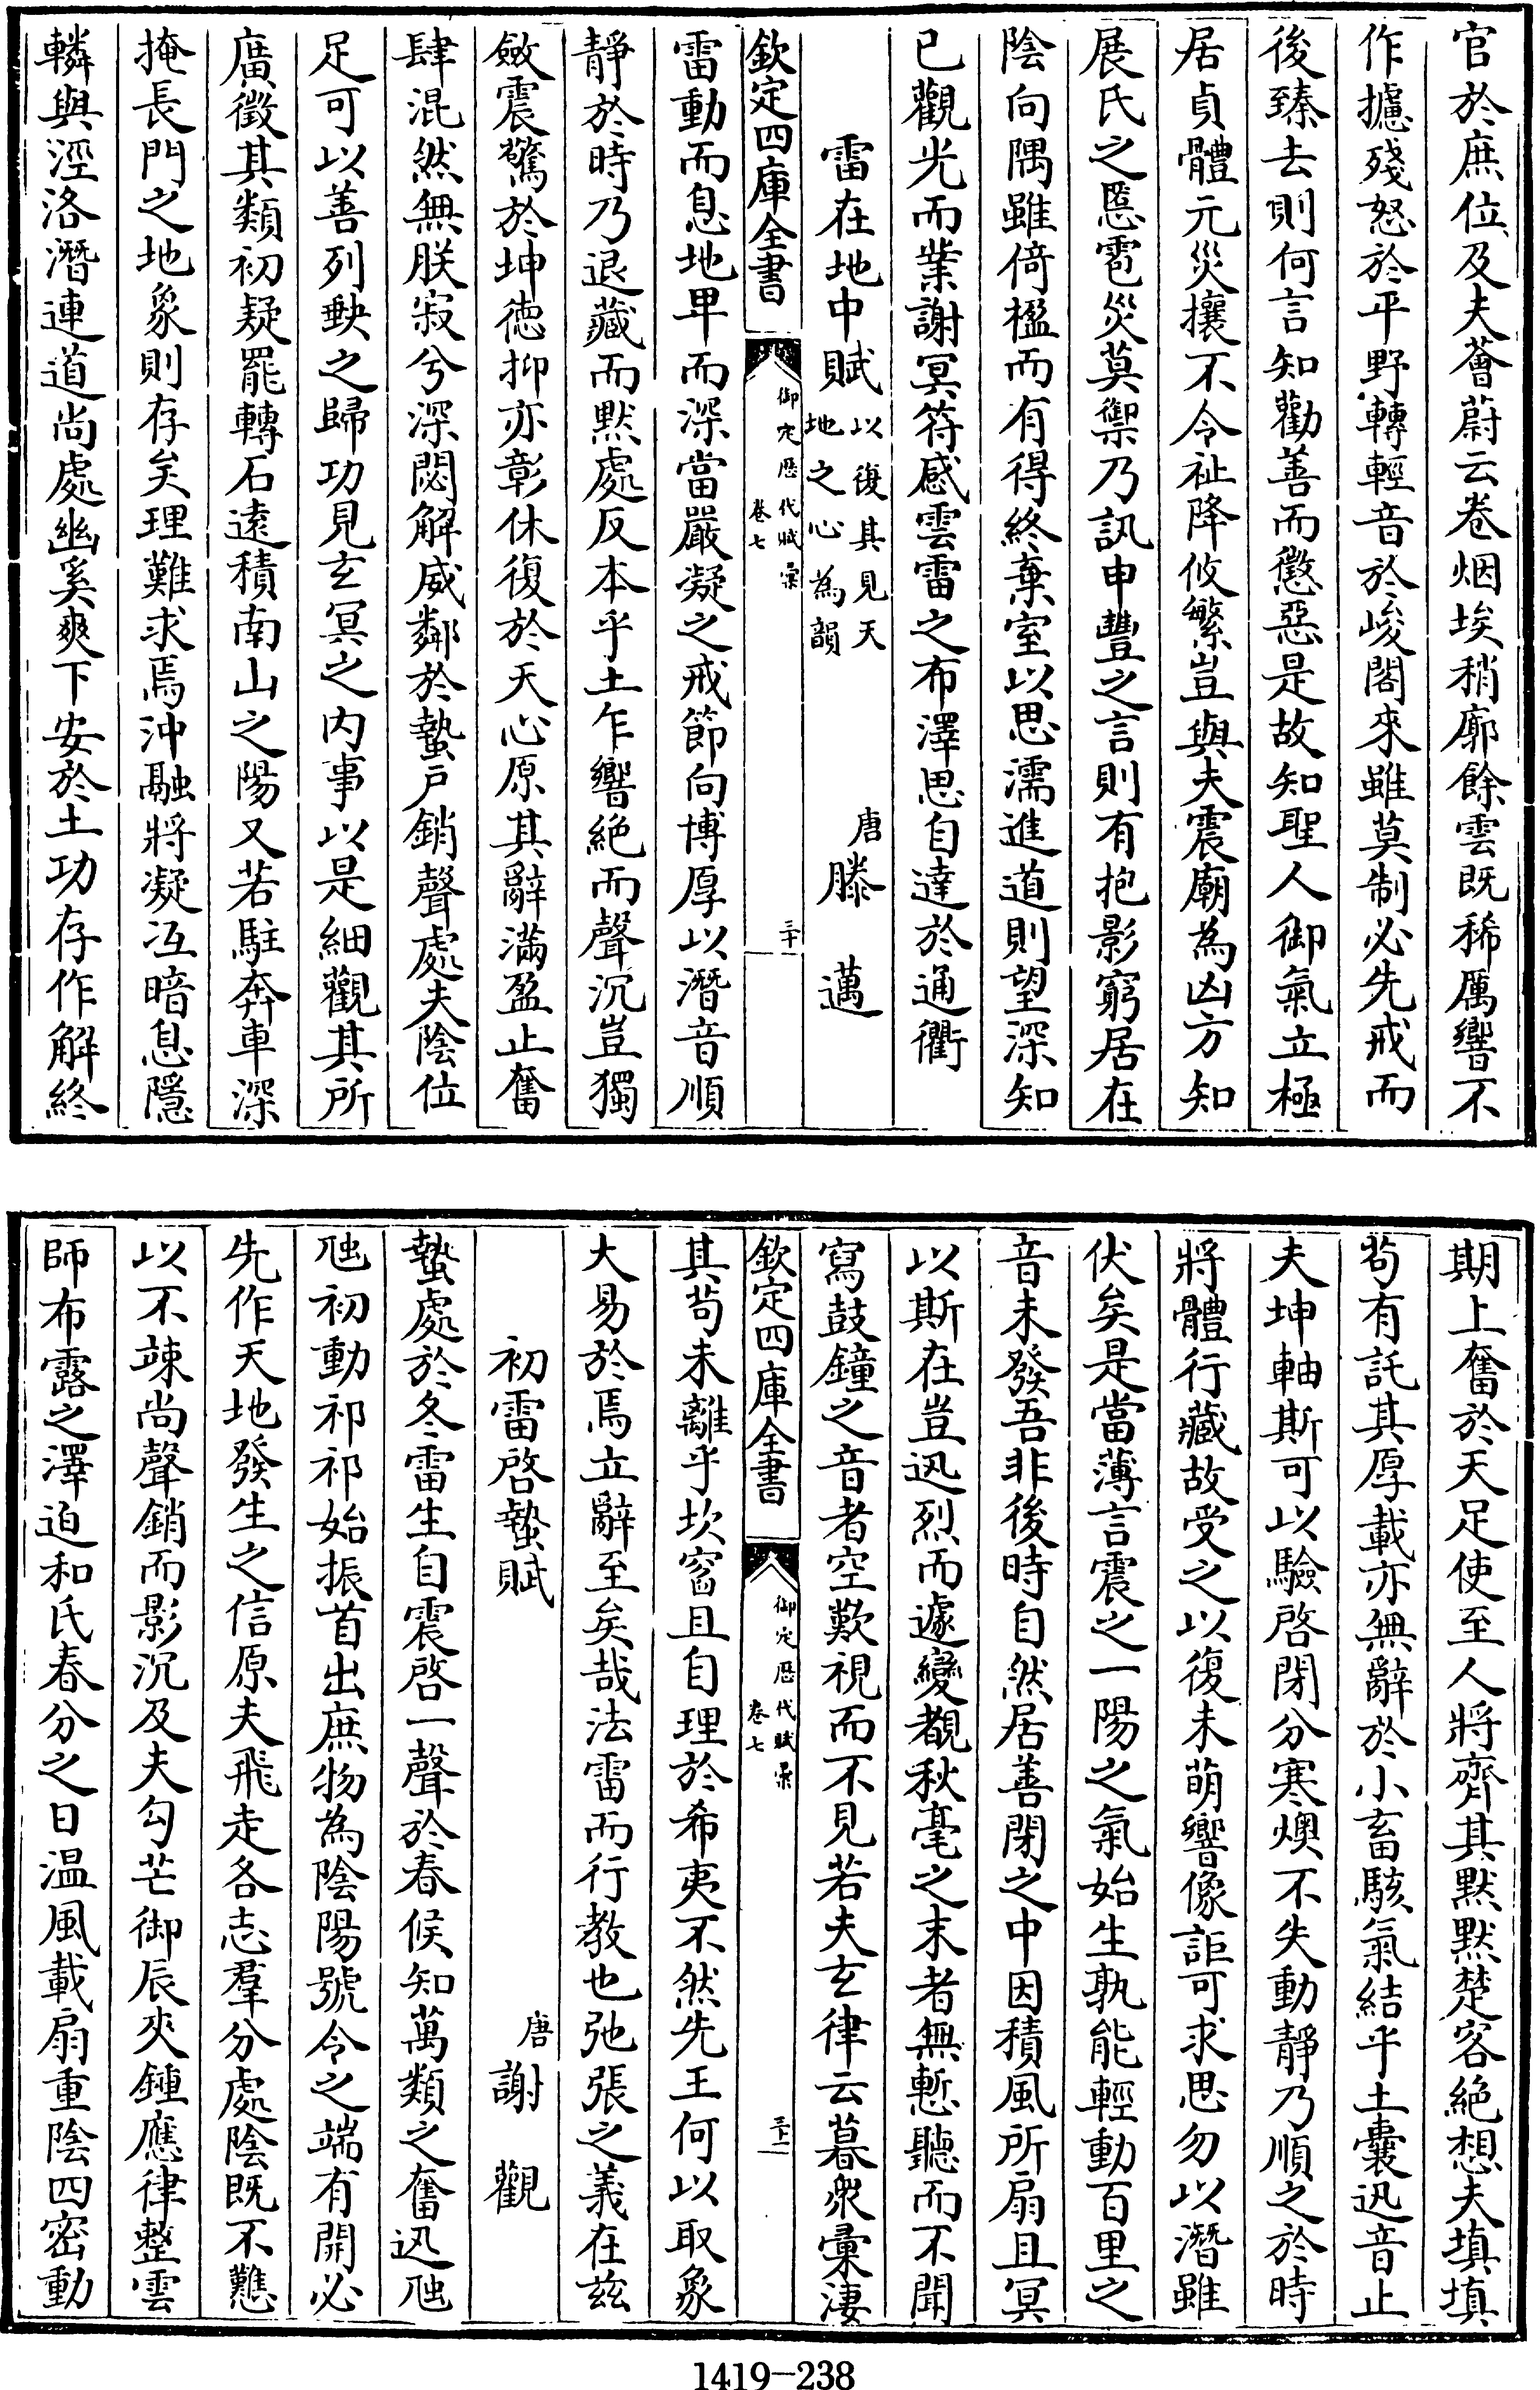 官於庶位及夫薈蔚云卷烟埃稍廓餘雲既稀厲響不
作攄殘怒於平野轉輕音於峻閣來雖莫制必先戒而
後臻去則何言知勸善而懲惡是故知聖人御氣立極
居貞體元災攘不令祉降攸繁豈與夫震廟為凶方知
展氏之慝雹災莫禦乃訊申豐之言則有抱影窮居在
陰向隅雖倚楹而有得終棄室以思濡進道則望深知
已觀光而業謝冥符感雲雷之布澤思自達於通衢
雷在地中賦以復其見天地之心為韻 唐滕邁
欽定四庫全書 御定歷代賦彙 卷七 三十
雷動而息地卑而深當嚴凝之戒節向博厚以潛音順
靜於時乃退藏而默處反本乎土乍響絕而聲沉豈獨
斂震驚於坤德抑亦彰休復於天心原其辭滿盈止奮
肆混然無朕寂兮深閟解威鄰於蟄戶銷聲處夫陰位
足可以善列缺之歸功見玄冥之内事以是細觀其所
廣徵其類初疑罷轉石遠積南山之陽又若駐奔車深
掩長門之地象則存矣理難求焉沖融將凝冱暗息隱
轔與涇洛潛連道尚處幽奚爽下安於土功存作解終
期上奮於天足使至人將齊其默默楚客絕想夫填填
茍有託其厚載亦無辭於小畜駭氣結乎土囊迅音止
夫坤軸斯可以驗啓閉分寒燠不失動靜乃順之於時
將體行藏故受之以復未萌響像詎可求思勿以潛雖
伏矣是當薄言震之一陽之氣始生孰能輕動百里之
音未發吾非後時自然居善閉之中因積風所扇且冥
以斯在豈迅烈而遽變覩秋毫之末者無慙聽而不聞
寫鼓鐘之音者空歎視而不見若夫玄律云暮衆彙淒
欽定四庫全書 御定歷代賦彙 卷七 三十一
其茍未離乎坎窞且自理於希夷不然先王何以取象
大易於焉立辭至矣哉法雷而行教也弛張之義在茲
初雷啓蟄賦 唐謝觀
蟄處於冬雷生自震啓一聲於春候知萬類之奮迅虺
虺初動祁祁始振首出庶物為陰陽號令之端有開必
先作天地發生之信原夫飛走各志羣分處陰既不難
以不竦尚聲銷而影沉及夫勾芒御辰夾鍾應律整雲
師布露之澤迫和氏春分之日温風載扇重陰四密動
1419-238